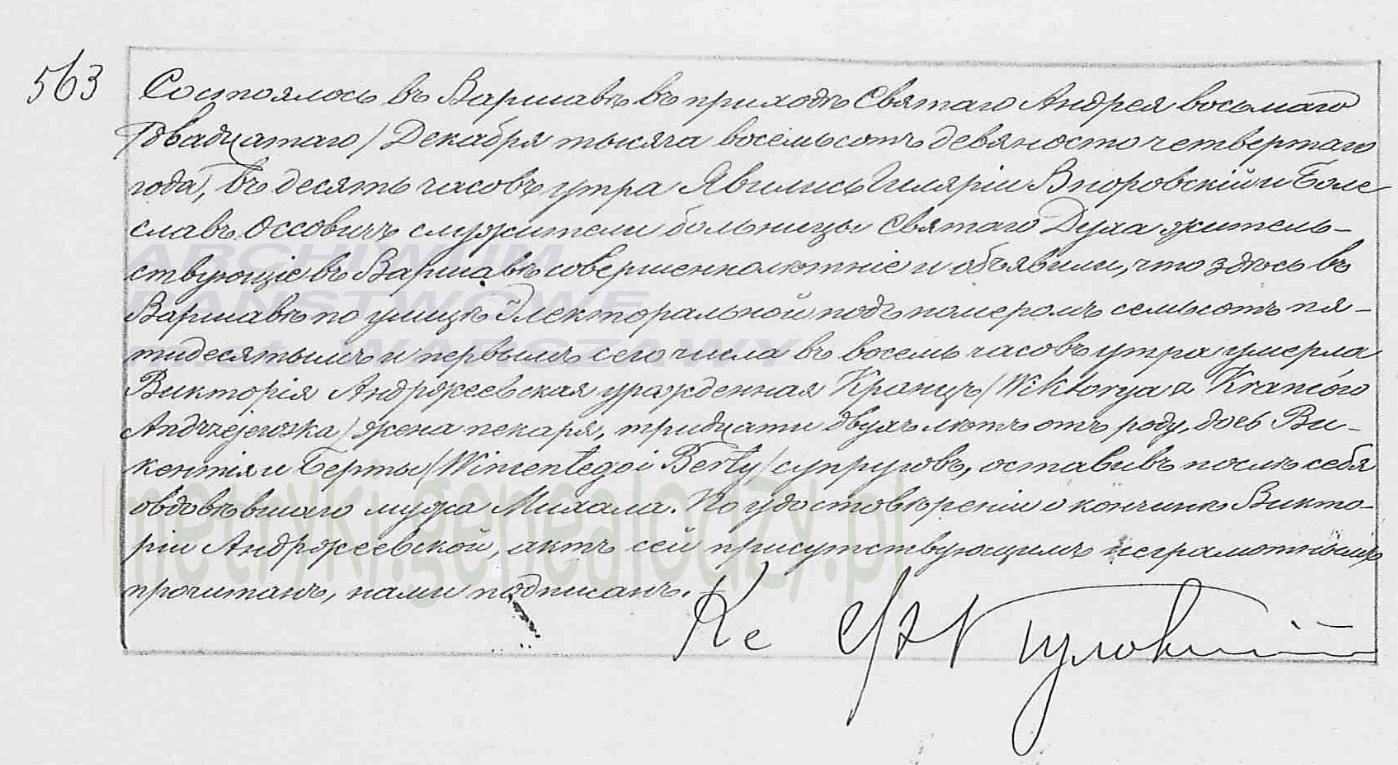 563
Состоялось въ Варшавѣ въ приходѣ Святаго Андрея восьмаго
/двадцатаго/ Декабря тысяча восемьсотъ девяносто четвертаго
года, въ десять часовъ утра. Явились Гилярій Вноровскій и Боле
славъ Оссовичъ служители больницы Святаго Духа житель-
ствующіе въ Варшавѣ совершеннолѣтніе и объявили, что здѣсь въ
Варшавѣ по улицѣ Электоральной подъ номеромъ семьсотъ пя-
тидесятымъ и первымъ сего числа въ восемь часовъ утра умерла
Викторія Андржеевская урожденная Кранцъ /Wiktorya z Kranców
Andrzejewska/ жена пекаря, тридцати двухъ лѣтъ отъ роду, дочь Ви-
кентія и Берты /Wincentego i Berty/ супруговъ, оставивъ послѣ себя
овдовѣвшаго мужа Михала. По удостовѣреніи о кончинѣ Викто-
ріи Андржеевской, актъ сей присутствующимъ неграмотнымъ
прочитанъ, нами подписанъ.
ARCHIWUM
PAŃSTWOWE
m.st. WARSZAWY
metryki.genealodzy.pl